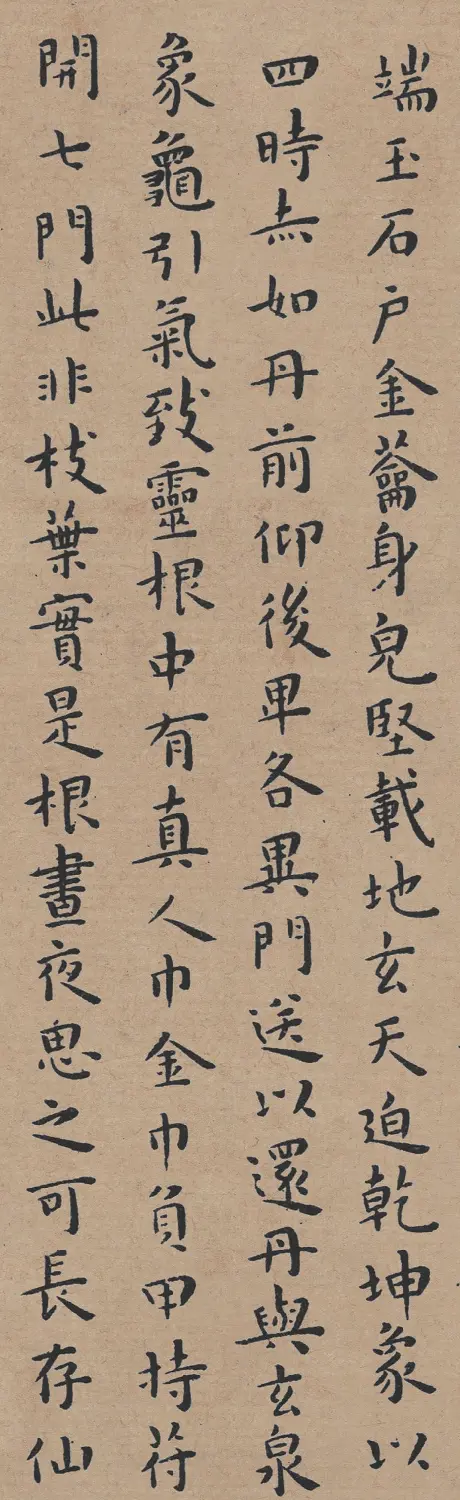 端玉石户金蘥身皃堅載地玄天迫乾坤象以
四時赤如丹前仰後卑各異門送以還丹與玄泉
象龜引氣致靈根中有真人巾金巾負甲持符
開七門此非枝葉實是根晝夜思之可長存仙